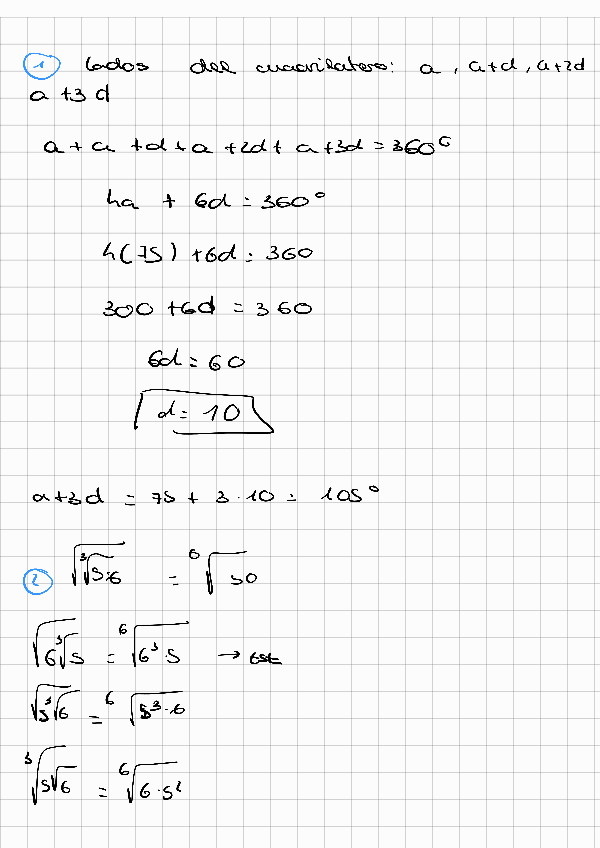 1 lados del cuadrilatero: a, a+d, a+2d
a+3d
a + a + d + a + 2d + a + 3d = 360°
4a + 6d = 360°
4(75) + 6d = 360
300 + 6d = 360
6d = 60
d = 10
a+3d = 75 + 3·10 = 105°
2 √∛5·6 = ⁶√30
√6∛5 = ⁶√6³·5 →
√5∛6 = ⁶√5³·6
∛5√6 = ⁶√6·5²